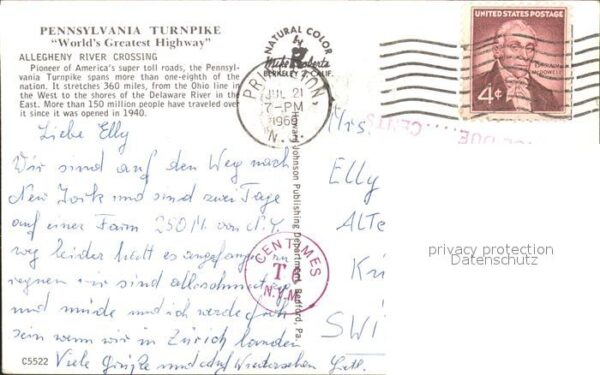 PENNSYLVANIA TURNPIKE
"World's Greatest Highway"
ALLEGHENY RIVER CROSSING
Pioneer of America's super toll roads, the Pennsyl-
vania Turnpike spans more than one-eighth of the
nation. It stretches 360 miles, from the Ohio line in
the West to the shores of the Delaware River in the
East. More than 150 million people have traveled over
it since it was opened in 1940.
Liebe Elly
Wir sind auf den Weg nach
New York und sind zwei Tage
auf einer Farm 250 M. von N.Y.
weg leider hat es angefangen zu
regnen wir sind alle
und müde und ich werde froh
sein wenn wir in Zürich landen
Viele Grüße und auf Wiedersehen
C5522
NATURAL COLOR
Mike Roberts
BERKELEY 2, CALIF.
JUL 21
7-PM
N.J.
Howard Johnson Publishing Department, Bedford, Pa.
CENTIMES
T
N.Y.
UNITED STATES POSTAGE
EPHRAIM
McDOWELL
4¢
DUE
CENTS
Mrs
Elly
ALTe
SWI
privacy protection
Datenschutz